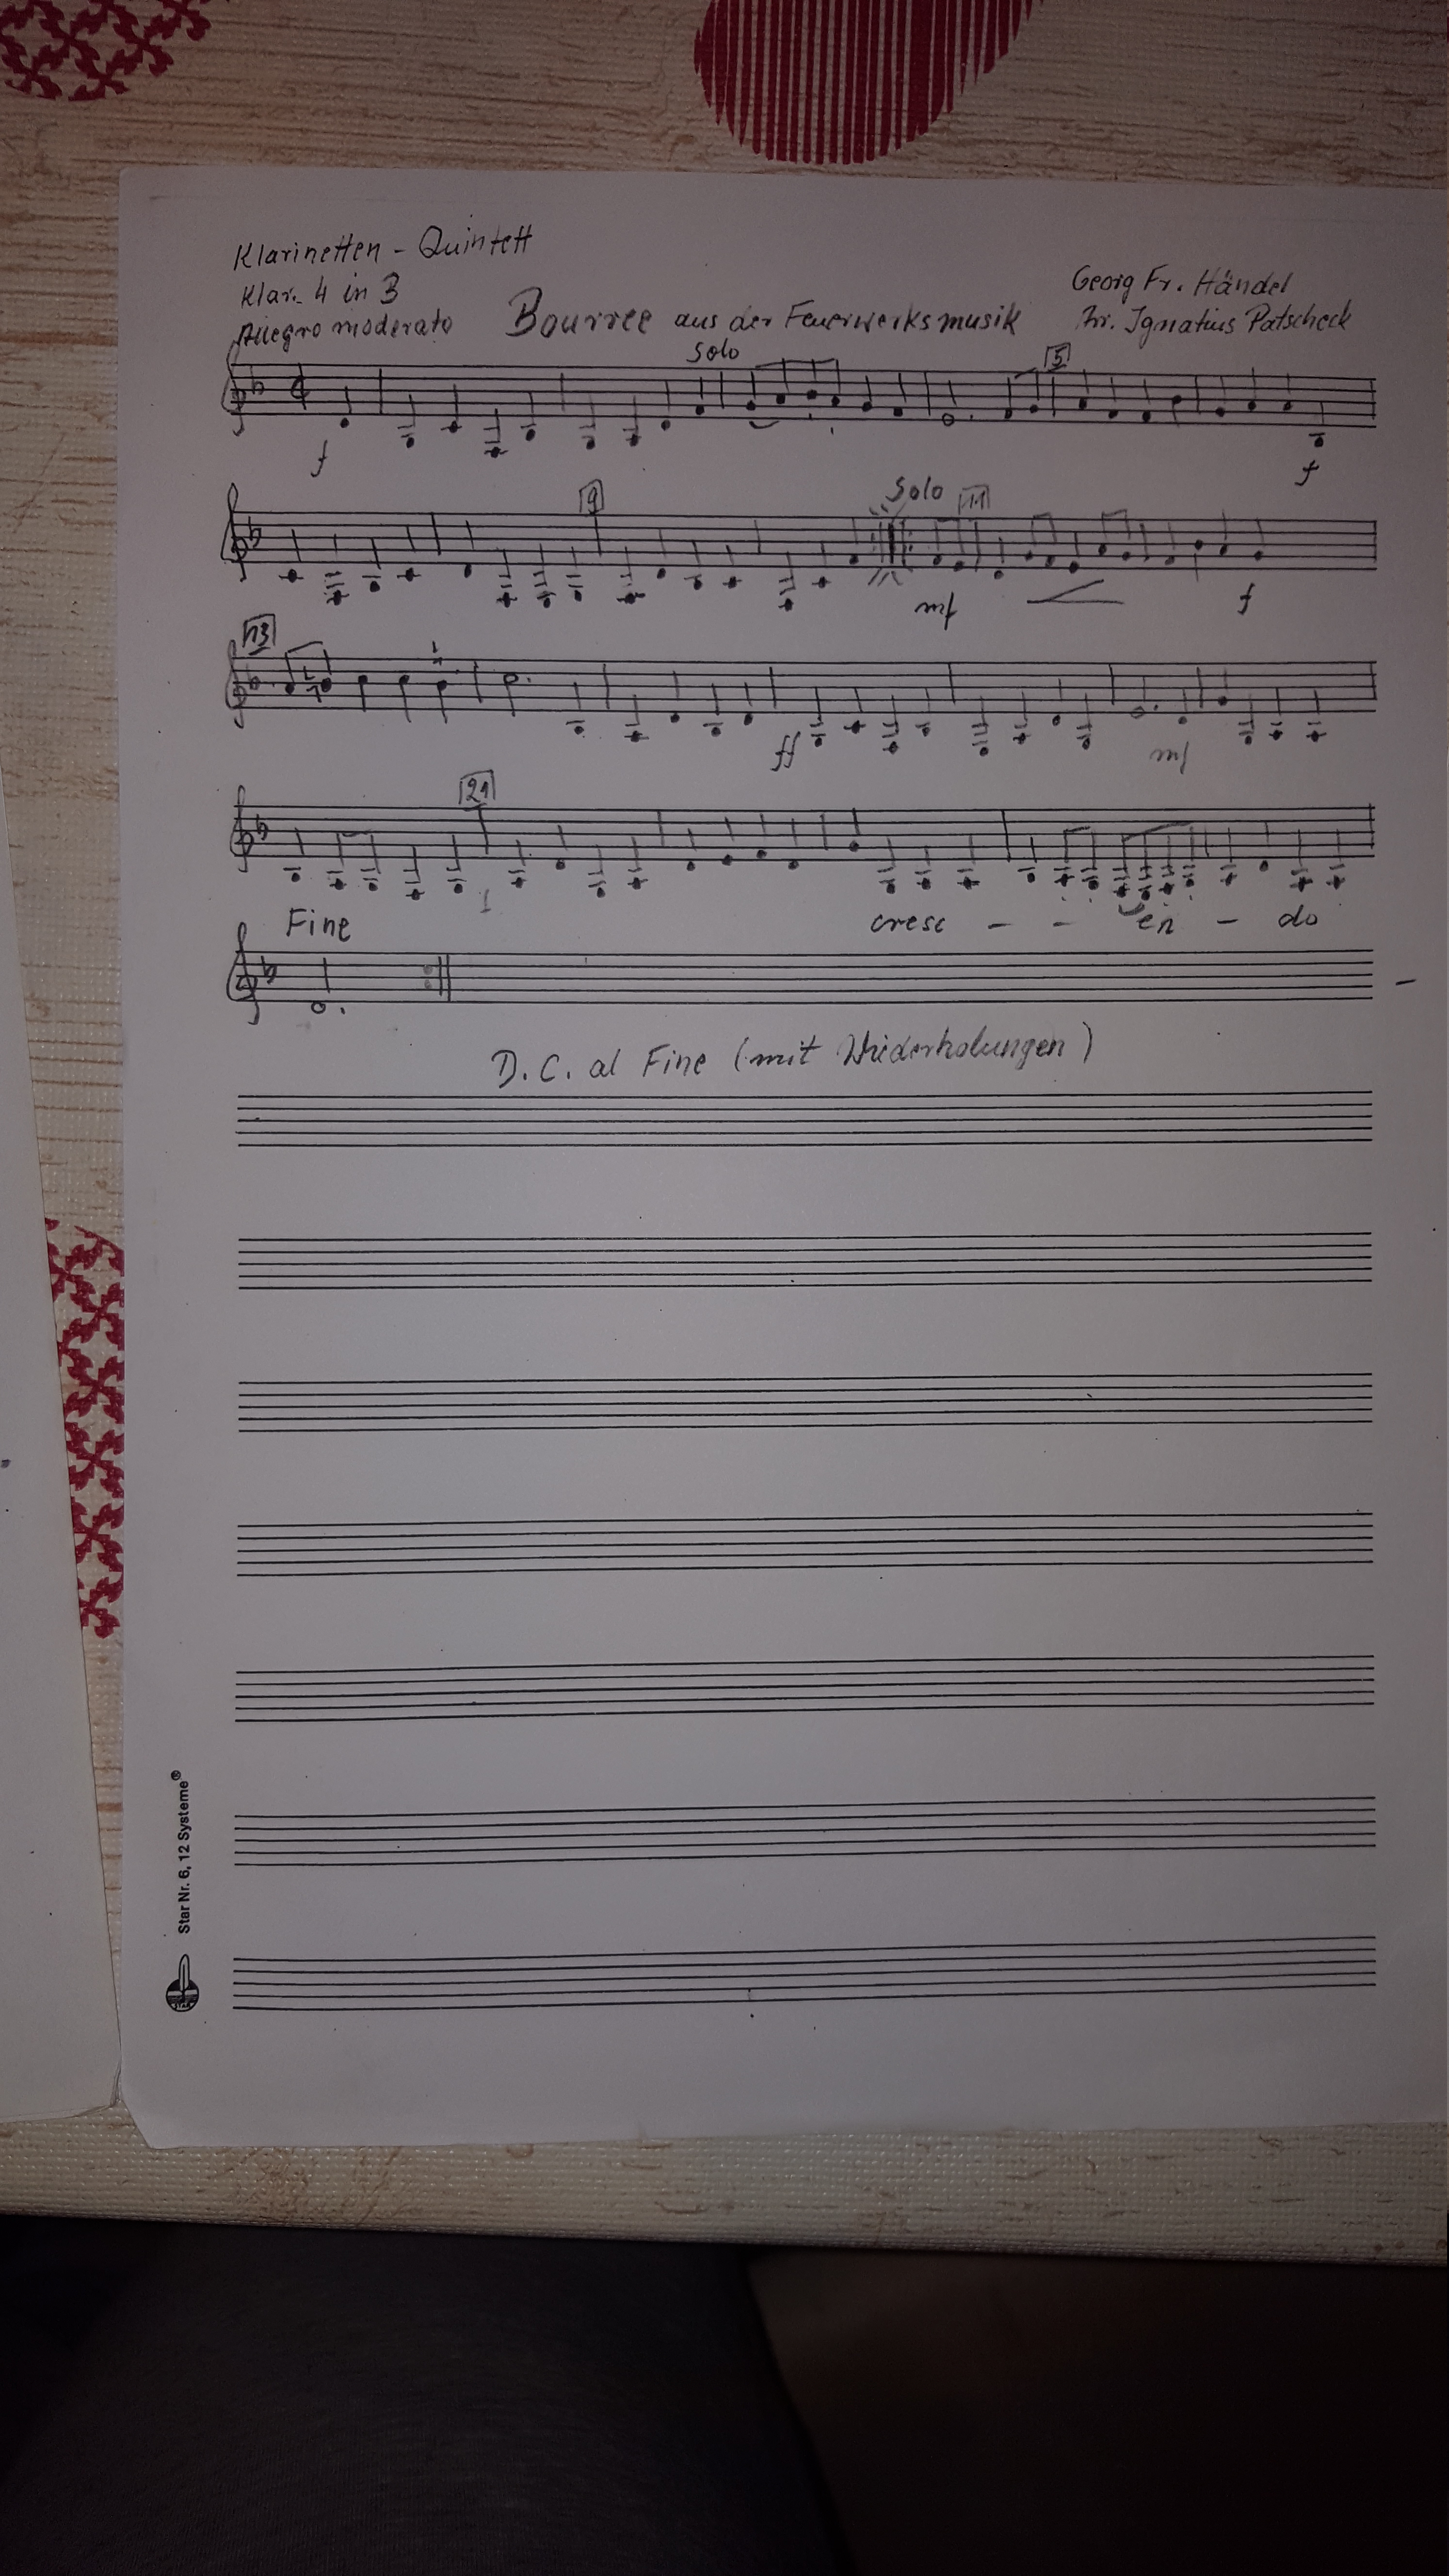 Klarinetten - Quintett
Klar. 4 in B
Allegro moderato
Bourree aus der Feuerwerksmusik
Georg Fr. Händel
Arr. Ignatius Patscheck
Solo
5
f
f
9
Solo
11
mf
f
13
ff
mf
21
cresc - - en - do
Fine
D.C. al Fine (mit Wiederholungen)
Star Nr. 6, 12 Systeme®